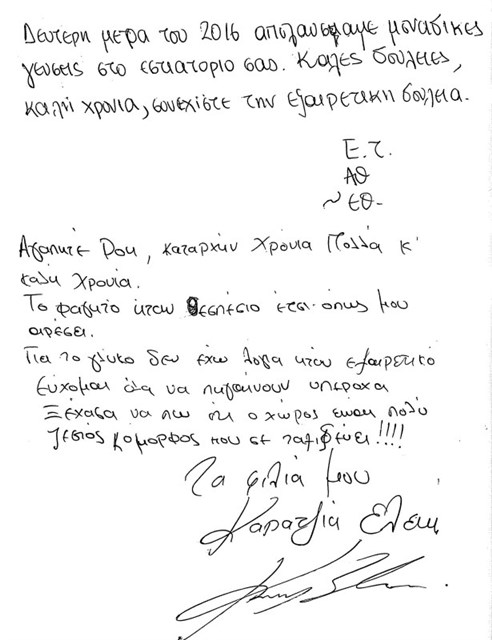 Δευτερη μερα του 2016 απολαυσαμε μοναδικες
γευσεις στο εστιατοριο σας. Καλες δουλειες,
καλη χρονια, συνεχιστε την εξαιρετικη δουλεια.
Ε.Τ.
ΑΘ
~ ΕΘ-
Αγαπητέ , καταρχήν Χρόνια Πολλά κ'
καλη Χρονια.
Το φαγητο ήταν θεσπέσιο έτσι όπως μου
αρέσει.
Για το γλυκο δεν έχω λογια ήταν εξαιρετικό
Ευχομαι όλα να πηγαίνουν υπεροχα
Ξέχασα να πω ότι ο χώρος ειναι πολύ
ζεστός κ όμορφος που σε ταξιδεύει!!!!
Τα φιλιά μου
Καρατζιά Ελενη